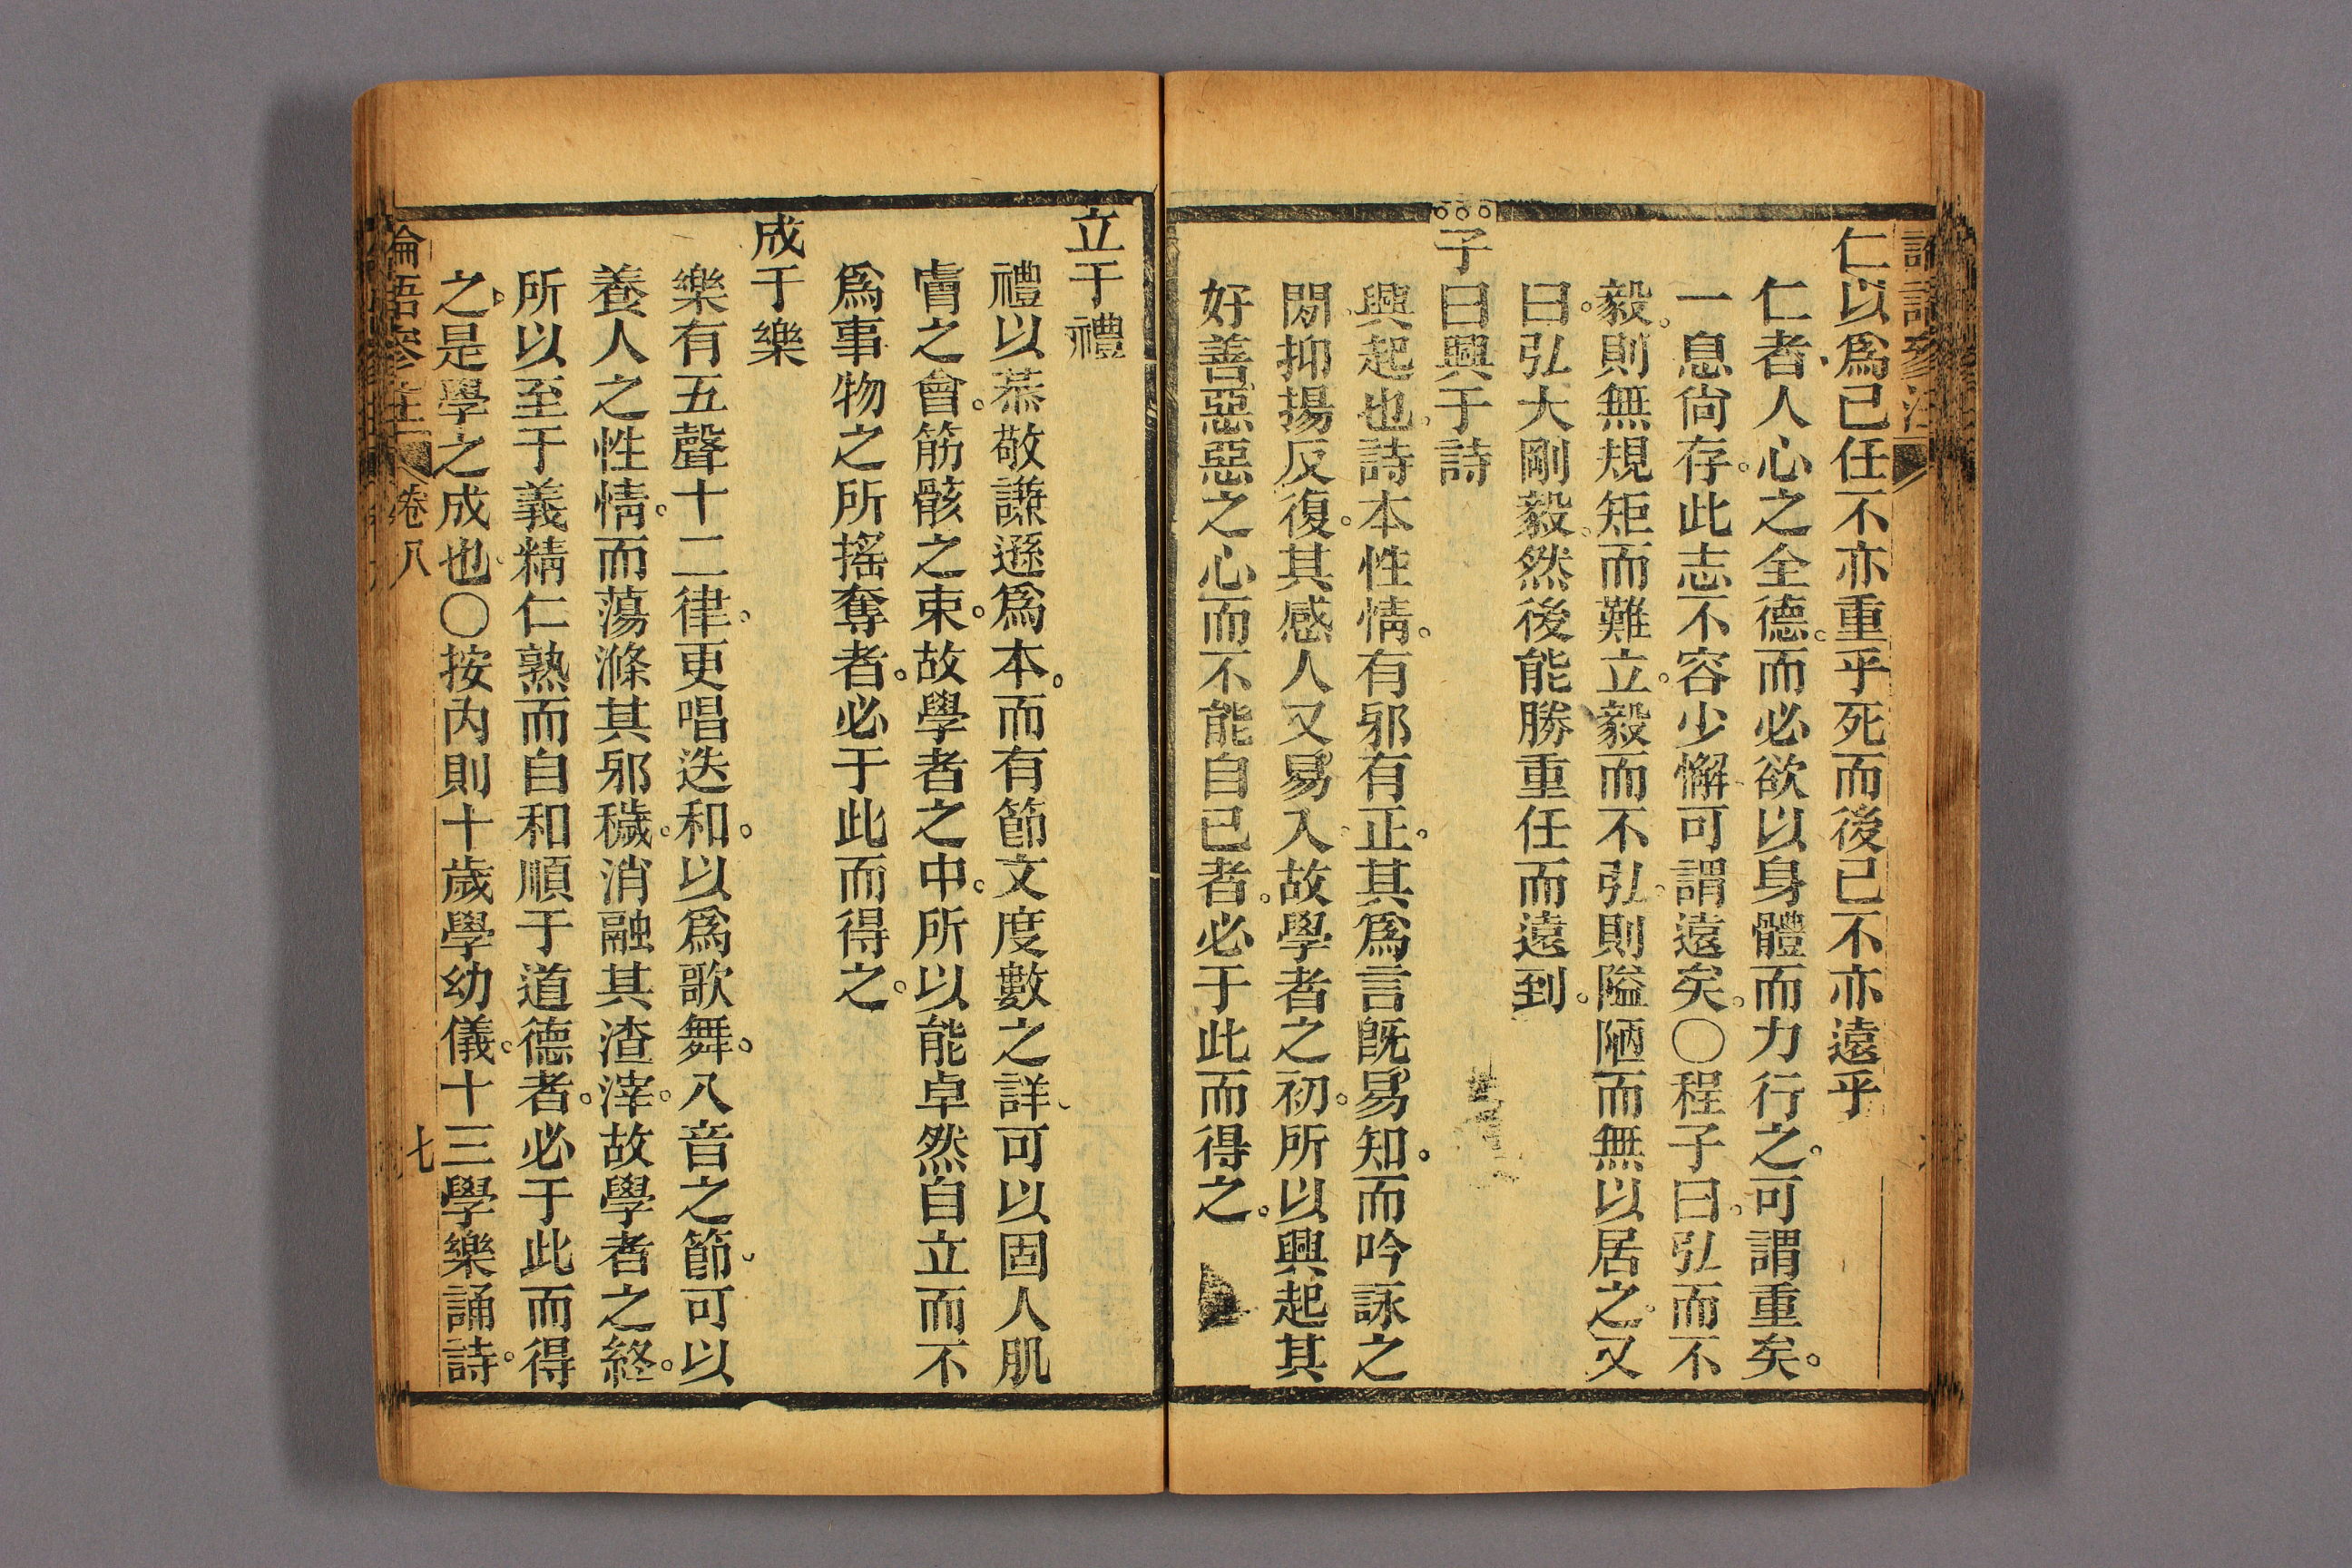 仁以爲己任不亦重乎死而後已不亦遠乎
仁者人心之全德。而必欲以身體而力行之。可謂重矣。
一息尙存。此志不容少懈。可謂遠矣。〇程子曰。弘而不
毅。則無規矩而難立。毅而不弘。則隘陋而無以居之。又
曰。弘大剛毅。然後能勝重任而遠到。
子曰興于詩
興起也。詩本性情。有邪有正。其爲言旣易知。而吟詠之
閒。抑揚反復。其感人又易入。故學者之初。所以興起其
好善惡惡之心。而不能自已者。必于此而得之。
立于禮
禮以恭敬謙遜爲本。而有節文度數之詳、可以固人肌
膚之會。筋骸之束。故學者之中。所以能卓然自立而不
爲事物之所搖奪者。必于此而得之。
成于樂
樂有五聲十二律。更唱迭和。以爲歌舞。八音之節、可以
養人之性情。而蕩滌其邪穢。消融其渣滓。故學者之終。
所以至于義精仁熟而自和順于道德者。必于此而得
之。是學之成也。〇按內則十歲學幼儀。十三學樂誦詩。
論語參注 卷八 七